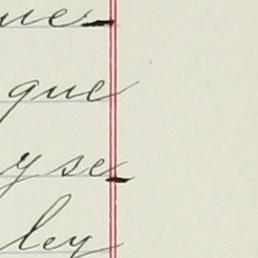 ue-
que
yse-
ley